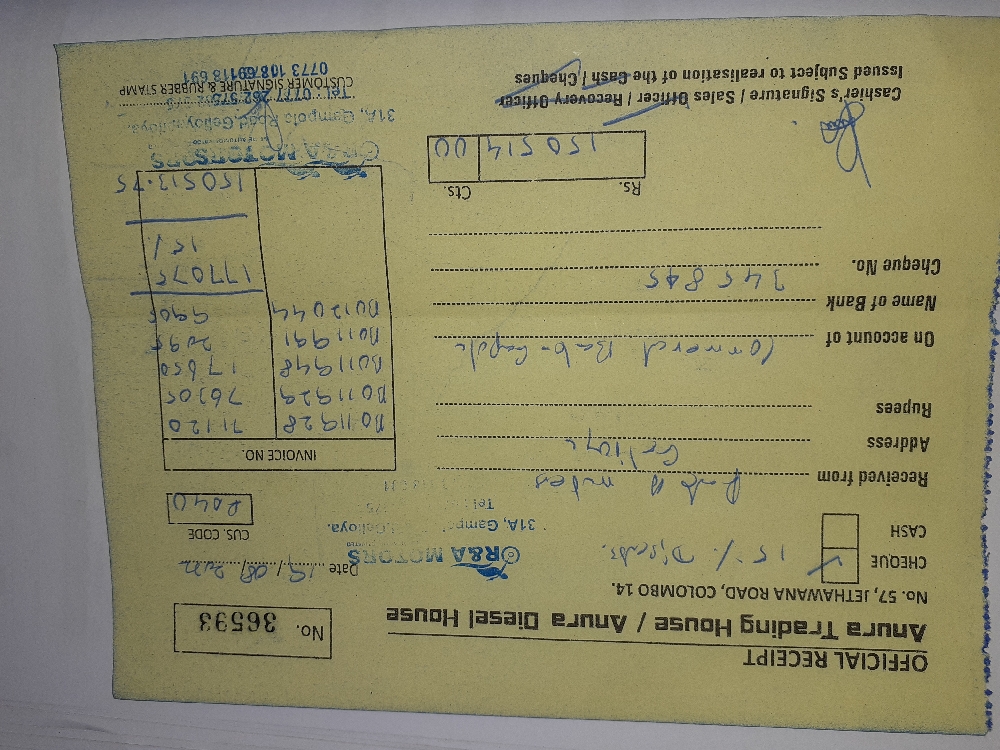 OFFICIAL RECEIPT
Anura Trading House / Anura Diesel House
No. 57, JETHAWANA ROAD, COLOMBO 14.
No. 36593
CHEQUE
15% Disco
CASH
Date 19/08/2022
R&A MOTORS
31A, Gampo Gelioya.
Tel :
CUS. CODE
R040
Received from R & A motes
Address Gelioya
Rupees
On account of Commercial Bank - Gapola
Name of Bank
Cheque No. 345845
INVOICE NO.
B011928 71120
B011929 76305
B011948 17650
B011991 2095
B012044 9905
177075
15%
150513.75
Rs. Cts.
150514 00
R&A MOTORS
31A, Gampola Road, Gelioya.
Tel : 0777 262 575
0773 108 691
Cashier's Signature / Sales Officer / Recovery Officer
Issued Subject to realisation of the Cash / Cheques
CUSTOMER SIGNATURE & RUBBER STAMP